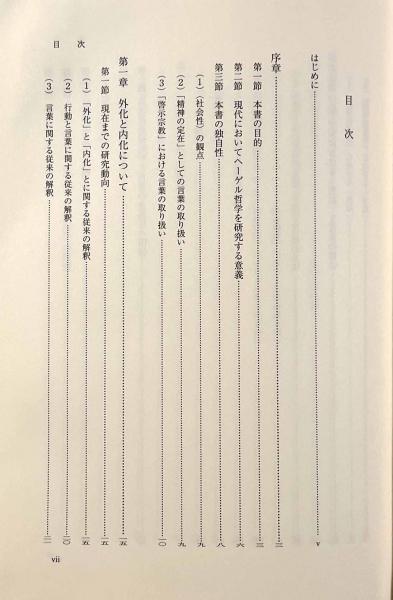 目次
はじめに…………v
序章…………三
第一節 本書の目的…………三
第二節 現代においてヘーゲル哲学を研究する意義…………六
第三節 本書の独自性…………八
(1)〈社会性〉の観点…………九
(2)「精神の定在」としての言葉の取り扱い…………九
(3)「啓示宗教」における言葉の取り扱い…………一〇
第一章 外化と内化について…………一五
第一節 現在までの研究動向…………一五
(1)「外化」と「内化」とに関する従来の解釈…………一五
(2)行動と言葉に関する従来の解釈…………二〇
(3)言葉に関する従来の解釈…………二二
目次
vii